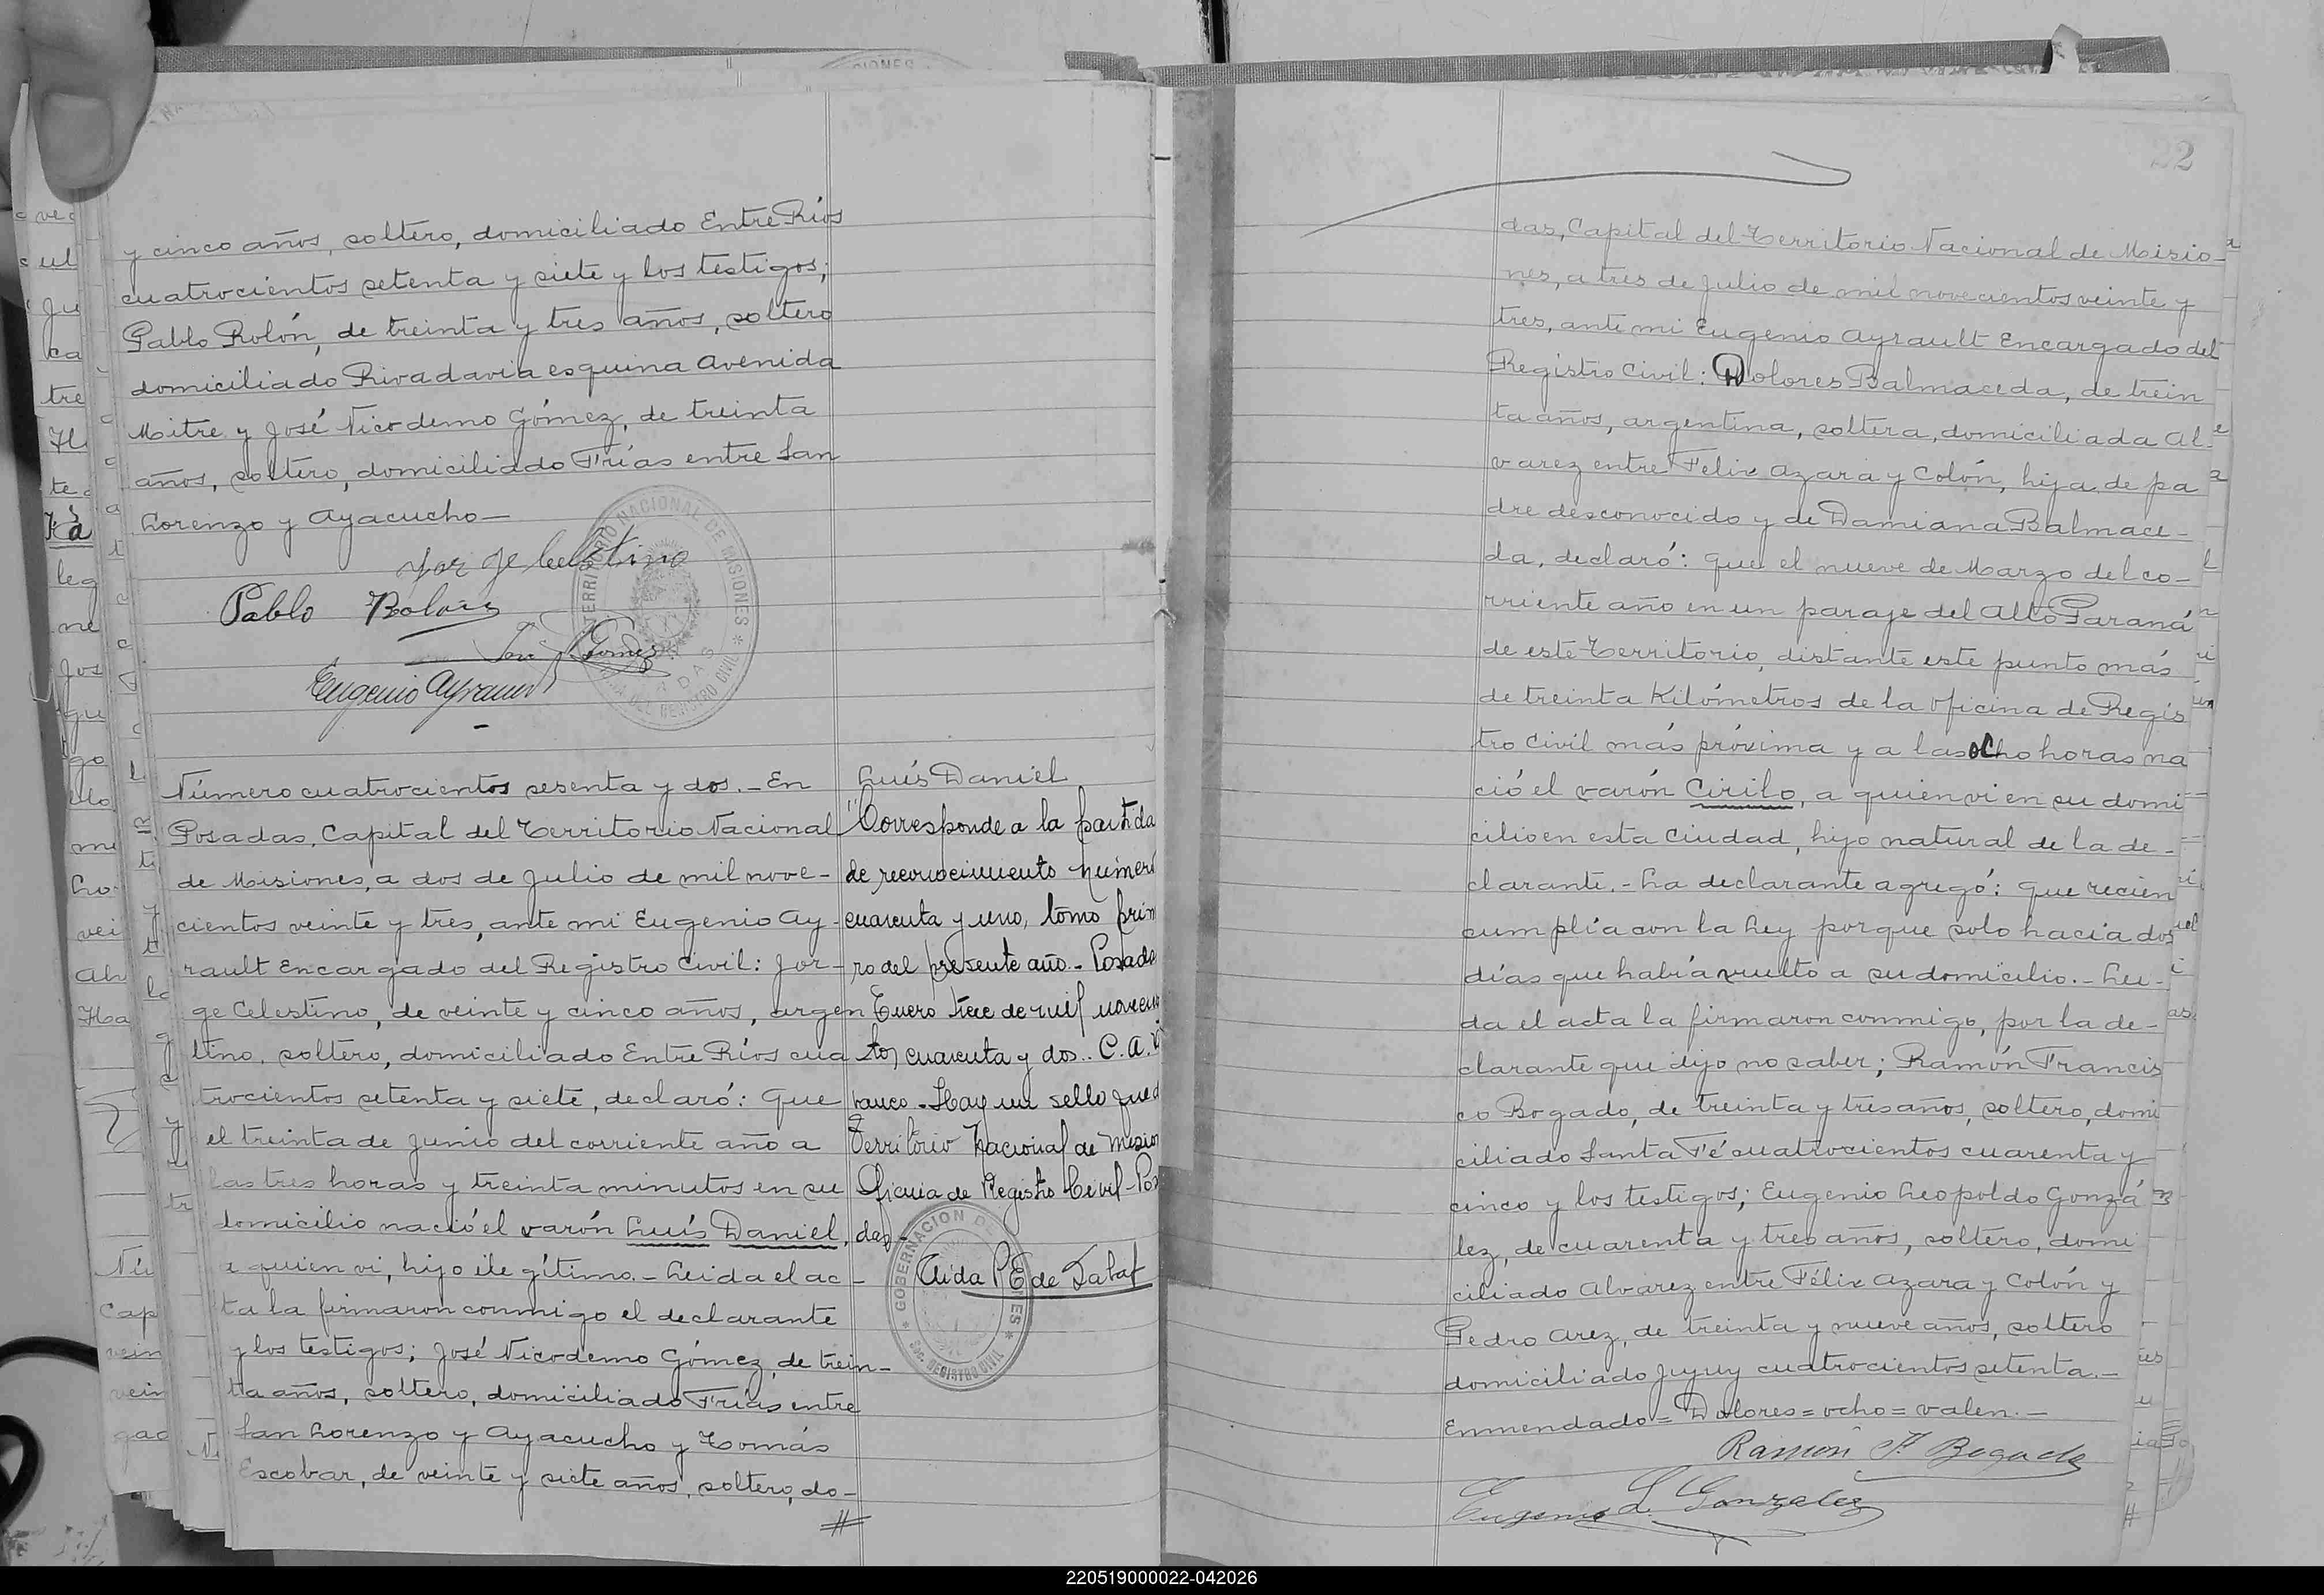 y cinco años, soltero, domiciliado Entre Ríos
cuatrocientos setenta y siete y los testigos;
Pablo Rolón, de treinta y tres años, soltero
domiciliado Rivadavia esquina Avenida
Mitre y José Nicodemo Gómez, de treinta
años, soltero, domiciliado Frías entre San
Lorenzo y Ayacucho—
Jorge Celestino
Pablo Rolón
José N. Gomez
Eugenio Ayrault
TERRITORIO NACIONAL DE MISIONES
REGISTRO CIVIL
Número cuatrocientos sesenta y dos.- En
Posadas, Capital del Territorio Nacional
de Misiones, a dos de Julio de mil nove-
cientos veinte y tres, ante mi Eugenio Ay-
rault Encargado del Registro Civil: Jor-
ge Celestino, de veinte y cinco años, argen
tino, soltero, domiciliado Entre Ríos cua
trocientos setenta y siete, declaró: Que
el treinta de Junio del corriente año a
las tres horas y treinta minutos en su
domicilio nació el varón Luís Daniel,
a quien vi, hijo ilegítimo.- Leida el ac-
ta la firmaron conmigo el declarante
y los testigos; José Nicodemo Gómez, de trein-
ta años, soltero, domiciliado Frías entre
San Lorenzo y Ayacucho y Tomás
Escobar, de veinte y siete años, soltero, do-
Luís Daniel
"Corresponde a la partida
de reconocimiento número
cuarenta y uno, tomo prim
ro del presente año.- Posada
Enero trece de mil novecien
tos cuarenta y dos.. C. A.
Hay un sello que d
Territorio Nacional de Mision
Oficina de Registro Civil-Pos
das-
Aida P E de
GOBERNACION DE
REGISTRO CIVIL
22
das, Capital del Territorio Nacional de Misio-
nes, a tres de Julio de mil novecientos veinte y
tres, ante mi Eugenio Ayrault Encargado del
Registro Civil: Dolores Balmaceda, de trein
ta años, argentina, soltera, domiciliada Al-
varez entre Felix Azara y Colón, hija de pa
dre desconocido y de Damiana Balmace-
da, declaró: Que el nueve de Marzo del co-
rriente año en un paraje del Alto Paraná
de este Territorio, distante este punto más
de treinta Kilómetros de la oficina de Regis
tro Civil más próxima y a las ocho horas na
ció el varón Cirilo, a quien vi en su domi
cilio en esta Ciudad, hijo natural de la de-
clarante.- La declarante agregó: Que recien
cumplía con la Ley porque solo hacía dos
días que había vuelto a su domicilio.- Lei-
da el acta la firmaron conmigo, por la de-
clarante que dijo no saber; Ramón Francis
co Bogado, de treinta y tres años, soltero, domi
ciliado Santa Fé cuatrocientos cuarenta y
cinco y los testigos; Eugenio Leopoldo Gonzá
lez, de cuarenta y tres años, soltero, domi
ciliado Alvarez entre Félix Azara y Colón y
Pedro Arez, de treinta y nueve años, soltero
domiciliado Jujuy cuatrocientos setenta.—
Enmendado=Dolores=ocho=valen.—
Ramón F. Bogado
Eugenio L. Gonzalez
220519000022-042026